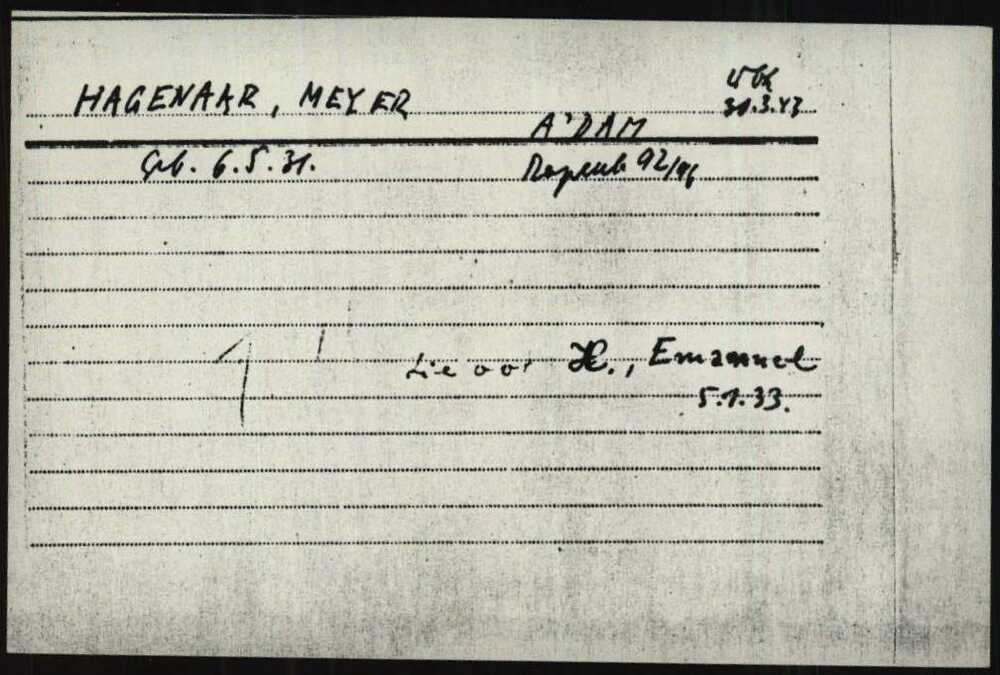 HAGENAAR, MEYER
WBK
31.3.43
A'DAM
Geb. 6.5.31.
Rapenb 92/96
zie oor H., Emanuel
5.1.33.